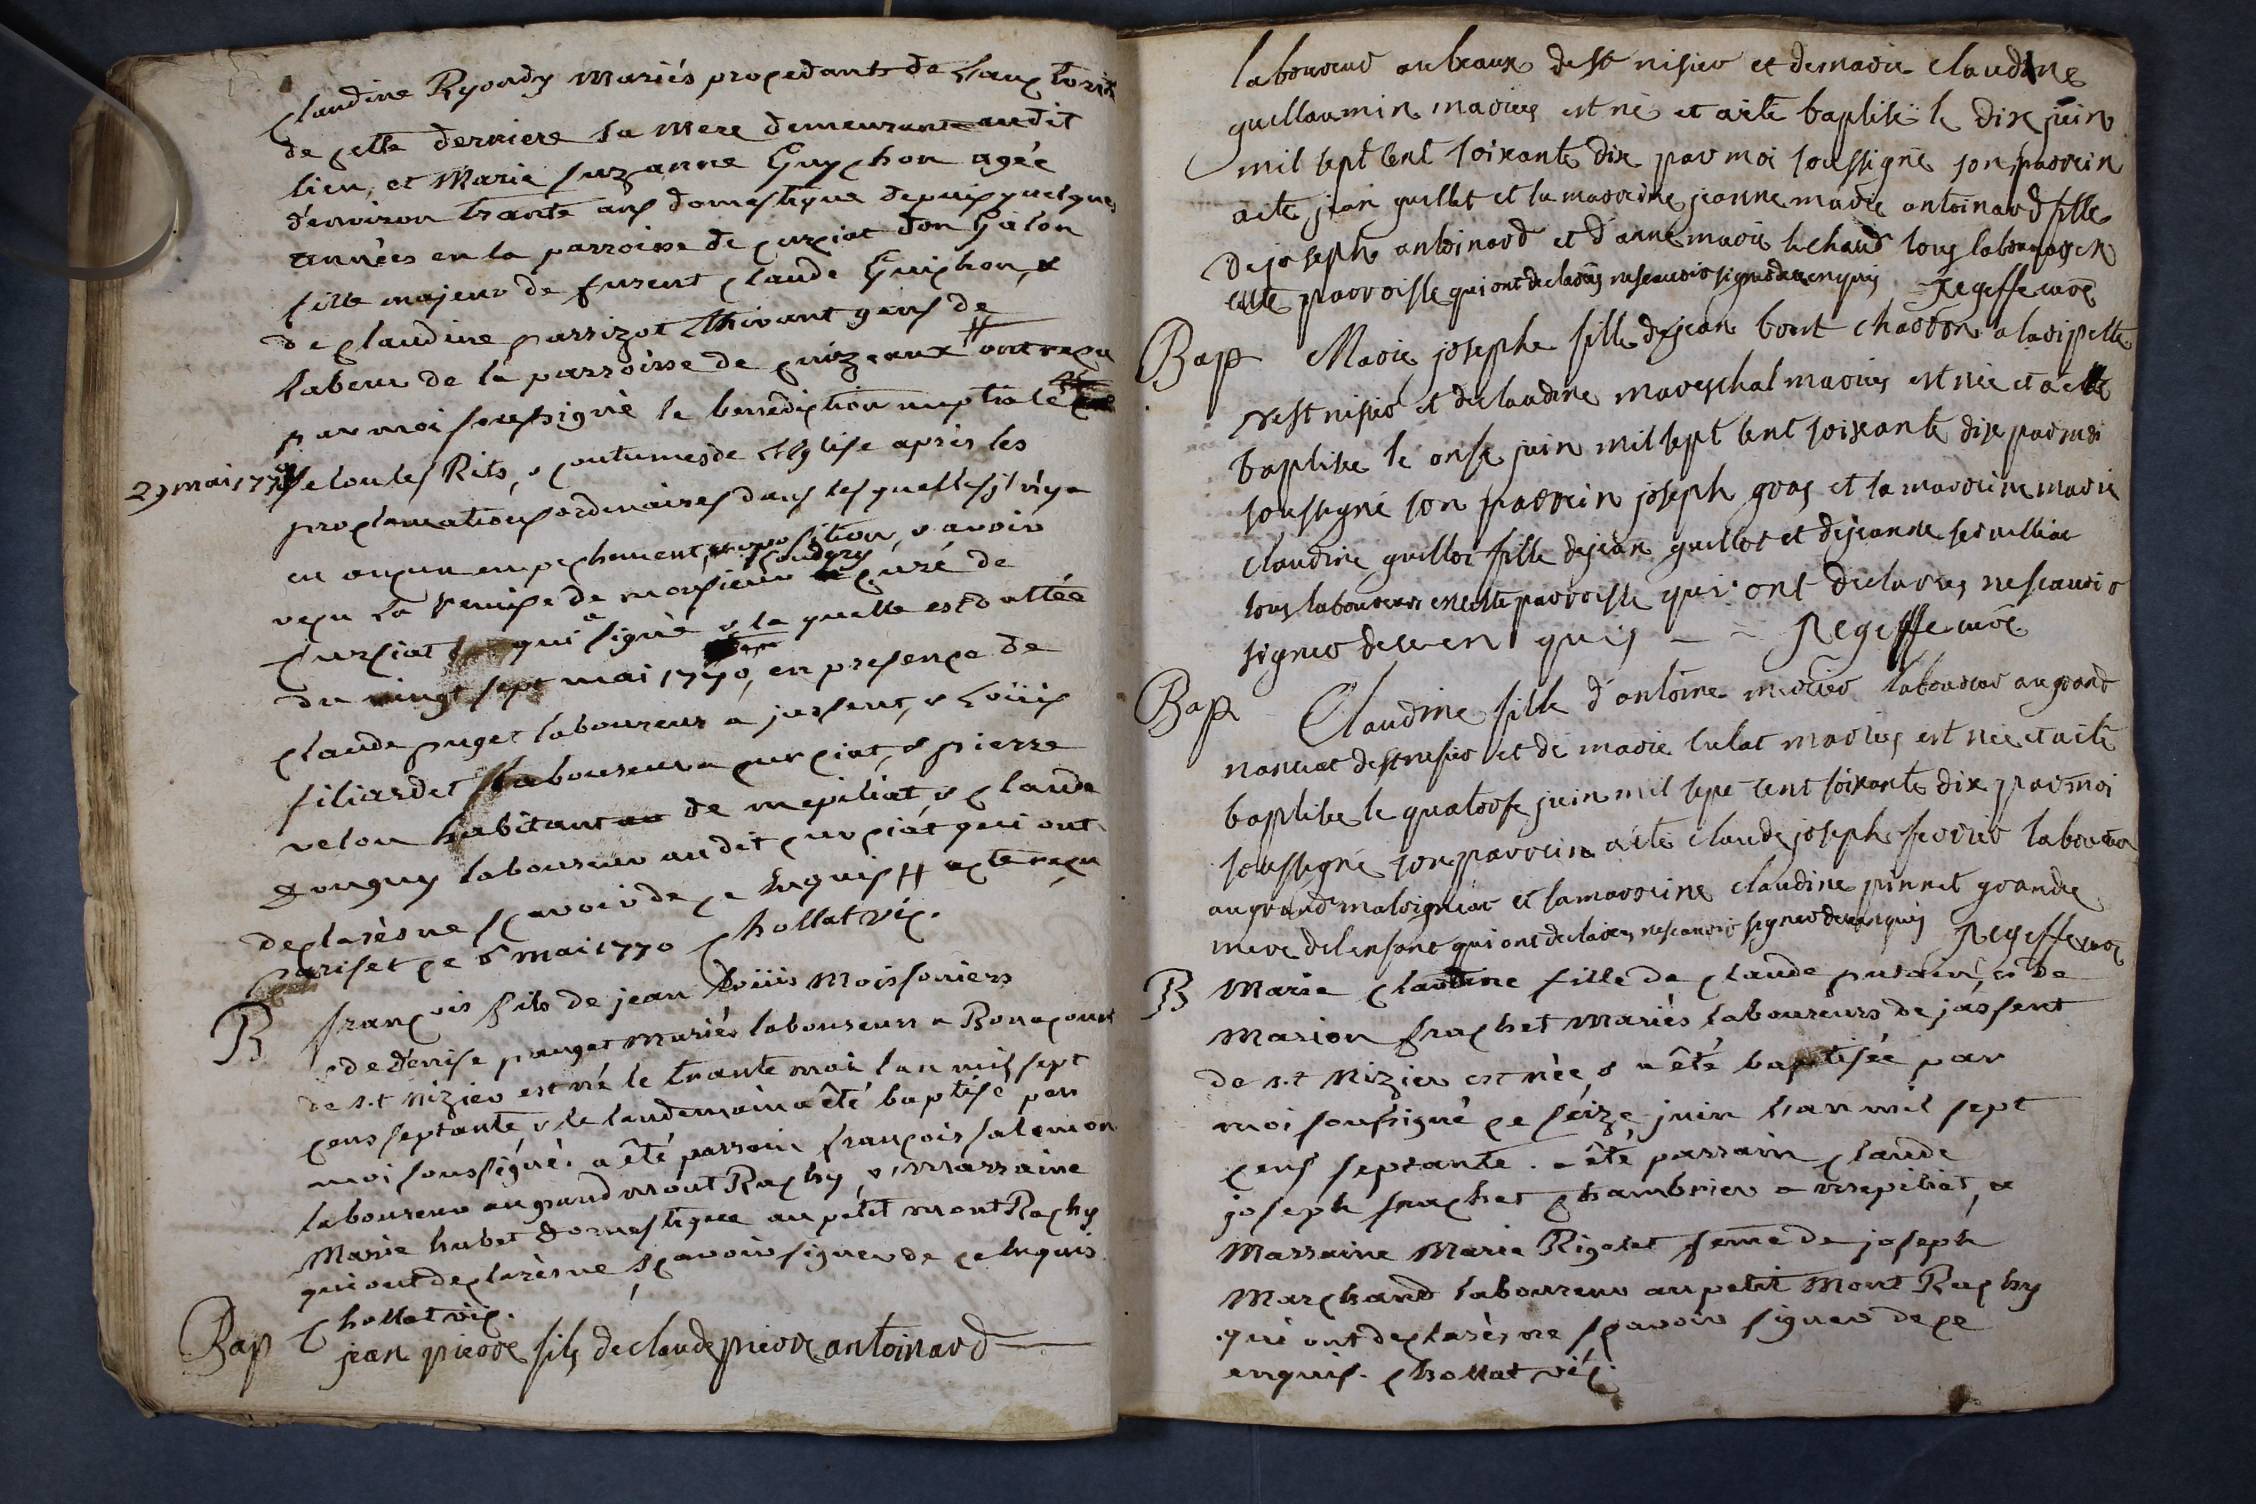 claudine Ryondy mariés procedants de L'auctorité
de cette derniere sa mere demeurante audit
lieu, et Marie suzanne Guychon agée
d'environ trante ans domestique depuis quelques
années en la parroisse de curciat don Galon
fille majeur de furent claude Guichon, &
de claudine parrizot vivant gens de
labeur de la parroisse de cuizeaux # ont reçu
par moi soussigné la benediction nuptiale
29 mai 1770 selon les Rits, & coutumes de L'Eglise après les
proclamations ordinaires dans lesquelles il n'y a
eu aucun empechement, n'y opposition, & avoir
reçu La remise de monsieur Coudery curé de
Curciat qui a signé & laquelle est dattée
du vingt sept mai 1770, en presence de
claude puget laboureur a jassent, & Loüis
filiardet laboureur a curciat, & pierre
velon habitant de mepiliat, & claude
Gouguy laboureur audit curciat qui ont
declarés ne sçavoir de ce Enquis # acte reçu
pariset ce 6 mai 1770 chollat vic.
B françois fils de jean Loüis Moissoniers
& de Denise pauget mariés laboureurs a Bonacourt
de s.t Nizier est né le trante mai l'an mil sept
cens septante & le landemain a été baptisé par
moi soussigné. a été parrain françois salemon
laboureur au grand mont Rachy, & marraine
Marie hubet domestique au petit mont Rachy
qui ont declarés ne sçavoir signer de ce Enquis.
chollat vic.
Bap jean pierre fils de claude pierre antoinard
laboureur au beaux de st nisier et de marie claudine
guillaumin mariés est né et a eté baptisé le dix juin
mil sept cent soixante dix par moi soussigné son parrein
a eté jean guillet et la marreine jeanne marie antoinard fille
de joseph antoinard et d'anne marie buchaud tous laboureurs en
cette parroisse qui ont declarés ne scauoir signer de ce enquis Regeffe curé
Bap Marie josephe fille de jean bont charron a la ripette
de st nisier et de claudine mareschal mariés est née et a eté
baptisée le onse juin mil sept cent soixante dix par moi
soussigné son parrein joseph gras et la marreine marie
claudine guillot fille de jean guillot et de jeanne
tous laboureurs en cette parroisse qui ont declarés ne scauoir
signer de ce en quis - - Regeffe curé
Bap Claudine fille d'antoine mercier laboureur au grand
nanciat de st nisier et de marie mariés est née et a eté
baptisée le quatorse juin mil sept cent soixante dix par moi
soussigné son parrein a eté claude joseph ferrier laboureur
au grand malvigniat et la marreine claudine pinnet grande
mere de l'enfant qui ont declarés ne scauoir signer de ce enquis Regeffe curé
B Marie claudine fille de claude putain, & de
Marion frachet mariés laboureurs de jassent
de s.t Nizier est née, & a été baptisée par
moi soussigné ce seize juin l'an mil sept
cens septante. a été parrain claude
joseph frachet chambrier a mepiliat, &
Marraine Marie Rigolet feme de joseph
Marchand laboureur au petit Mont Rachy
qui ont declarés ne sçavoir signer de ce
enquis. chollat vic.